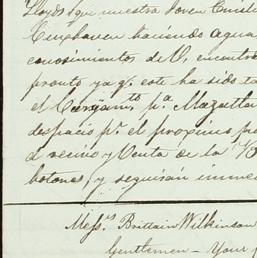 Lloyds que nuestra Joven Cristi
Cuxhaven haciendo agua
conosimientos de V, encontra
pronto ya q. este ha sido ta
el Cargam.to p.a Mazatla
despacio p.r el proximo pa
a recivo y Venta de la
botones, y seguirán inme
Mess.rs Brittain Wilkinson
Gentlemen - Your